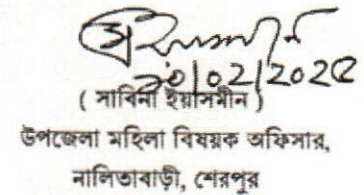 ২০/০২/2025
( সাবিনা ইয়াসমীন )
উপজেলা মহিলা বিষয়ক অফিসার,
নালিতাবাড়ী, শেরপুর